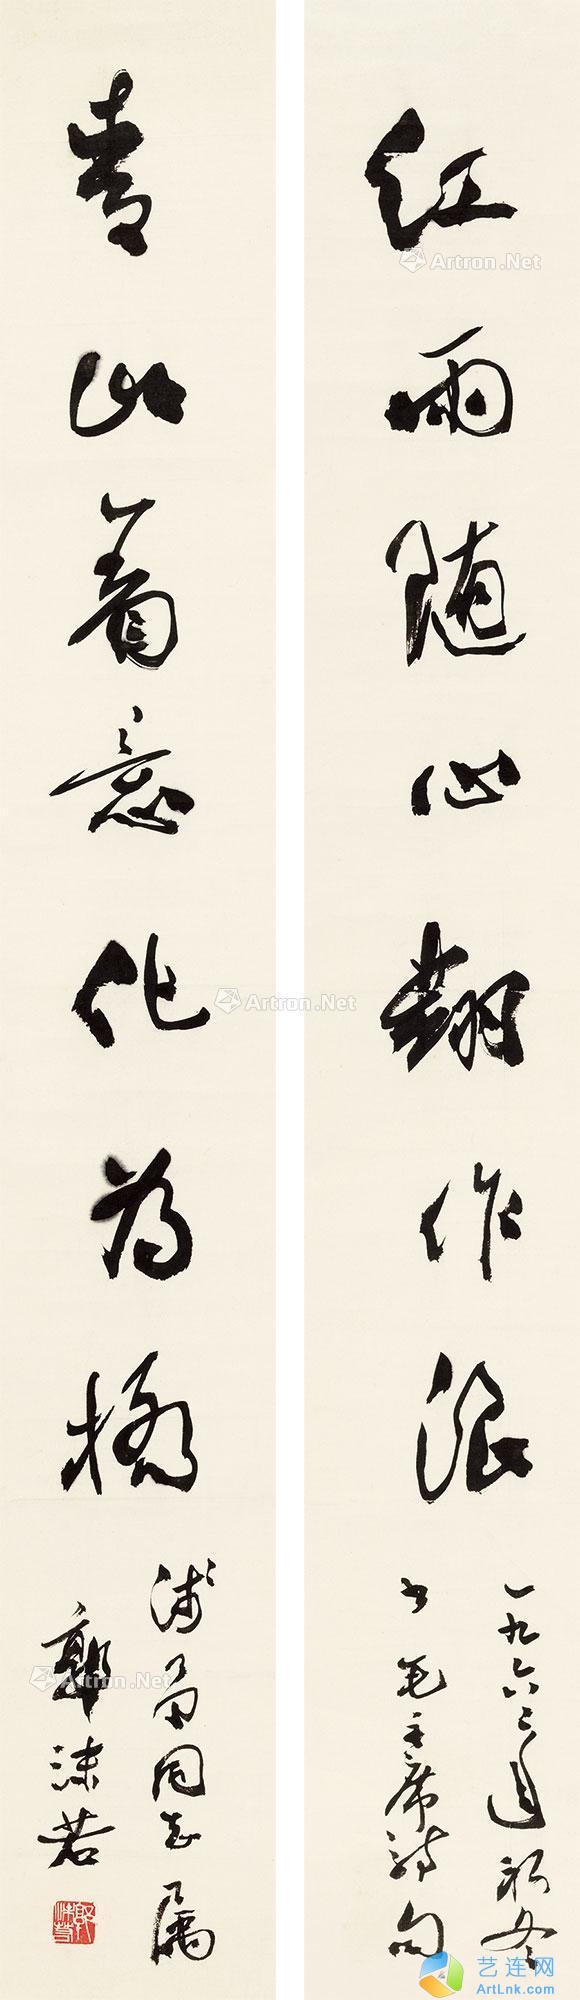 红雨随心翻作浪
一九六三年初冬
书毛主席诗句
青山着意化为桥
同志属
郭沫若
郭沫若
Artron.Net
Artron.Net
Artron.Net
Artron.Net
艺连网
ArtLnk.com